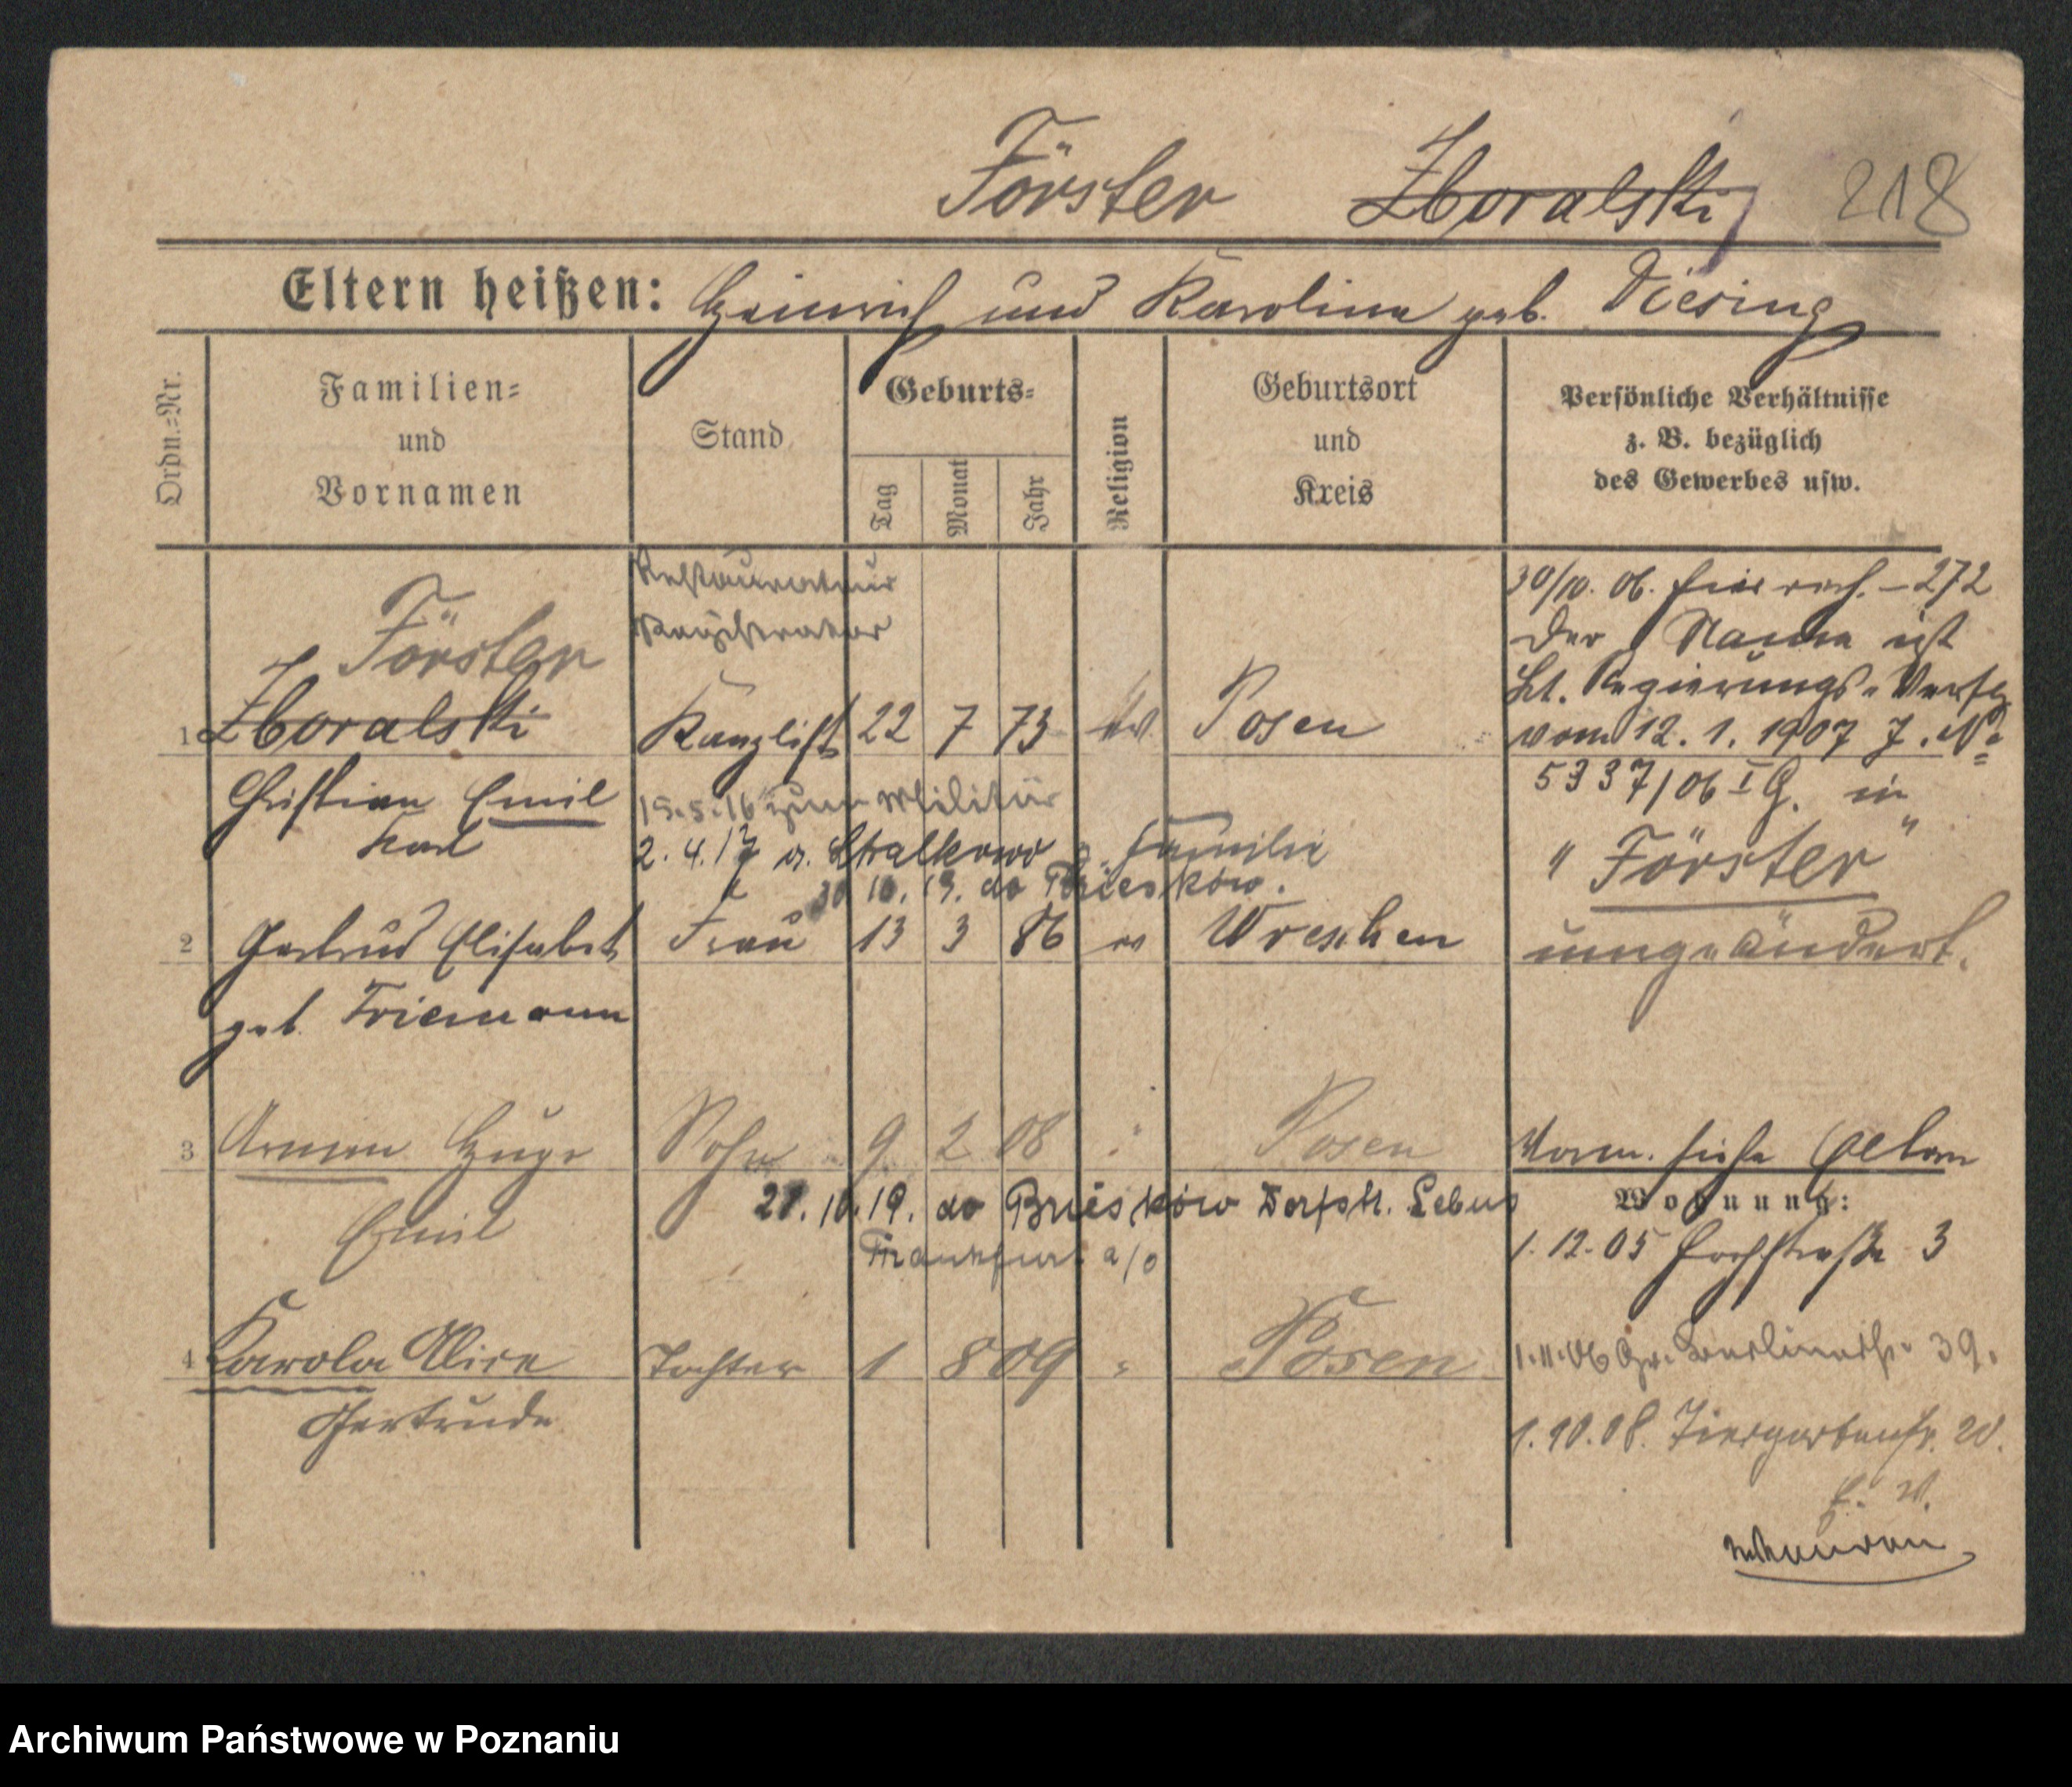 Förster Zboralski 218
Eltern heißen: Heinrich und Karoline geb. Diesing
Ordn.=Nr.
Familien=
und
Vornamen
Stand
Geburts=
Tag
Monat
Jahr
Religion
Geburtsort
und
Kreis
Persönliche Verhältnisse
z. B. bezüglich
des Gewerbes usw.
Restaurateur
Registrator
Förster
1 Zboralski Kanzlist 22 7 73 ev Posen
Christian Emil
Karl
15.5.16 zum Militär
2.4.17 n. Stralkowo Familie
10.19. do Brieskow.
2 Gertrud Elisabeth Frau 13 3 86 ev Wreschen
geb. Friemann
3 Armin Hugo Sohn 9 2 08 " Posen
Emil
21.10.19. do Brieskow Dorfstr. Lebus
Frankfurt a/o
4 Karola Alice Tochter 1 8 09 " Posen
Gertrude
30/10. 06. 272
Der Name ist
Lt. Regierungs-Verfg
vom 12. 1. 1907 J. No
5337/06 I G. in
"Förster"
umgeändert.
Vorm. siehe Eltern
Wohnung:
1.12.05 Hochstraße 3
1.11.06 Gr. Berlinerstr. 39.
1.10.08. Tiergartenstr. 20.